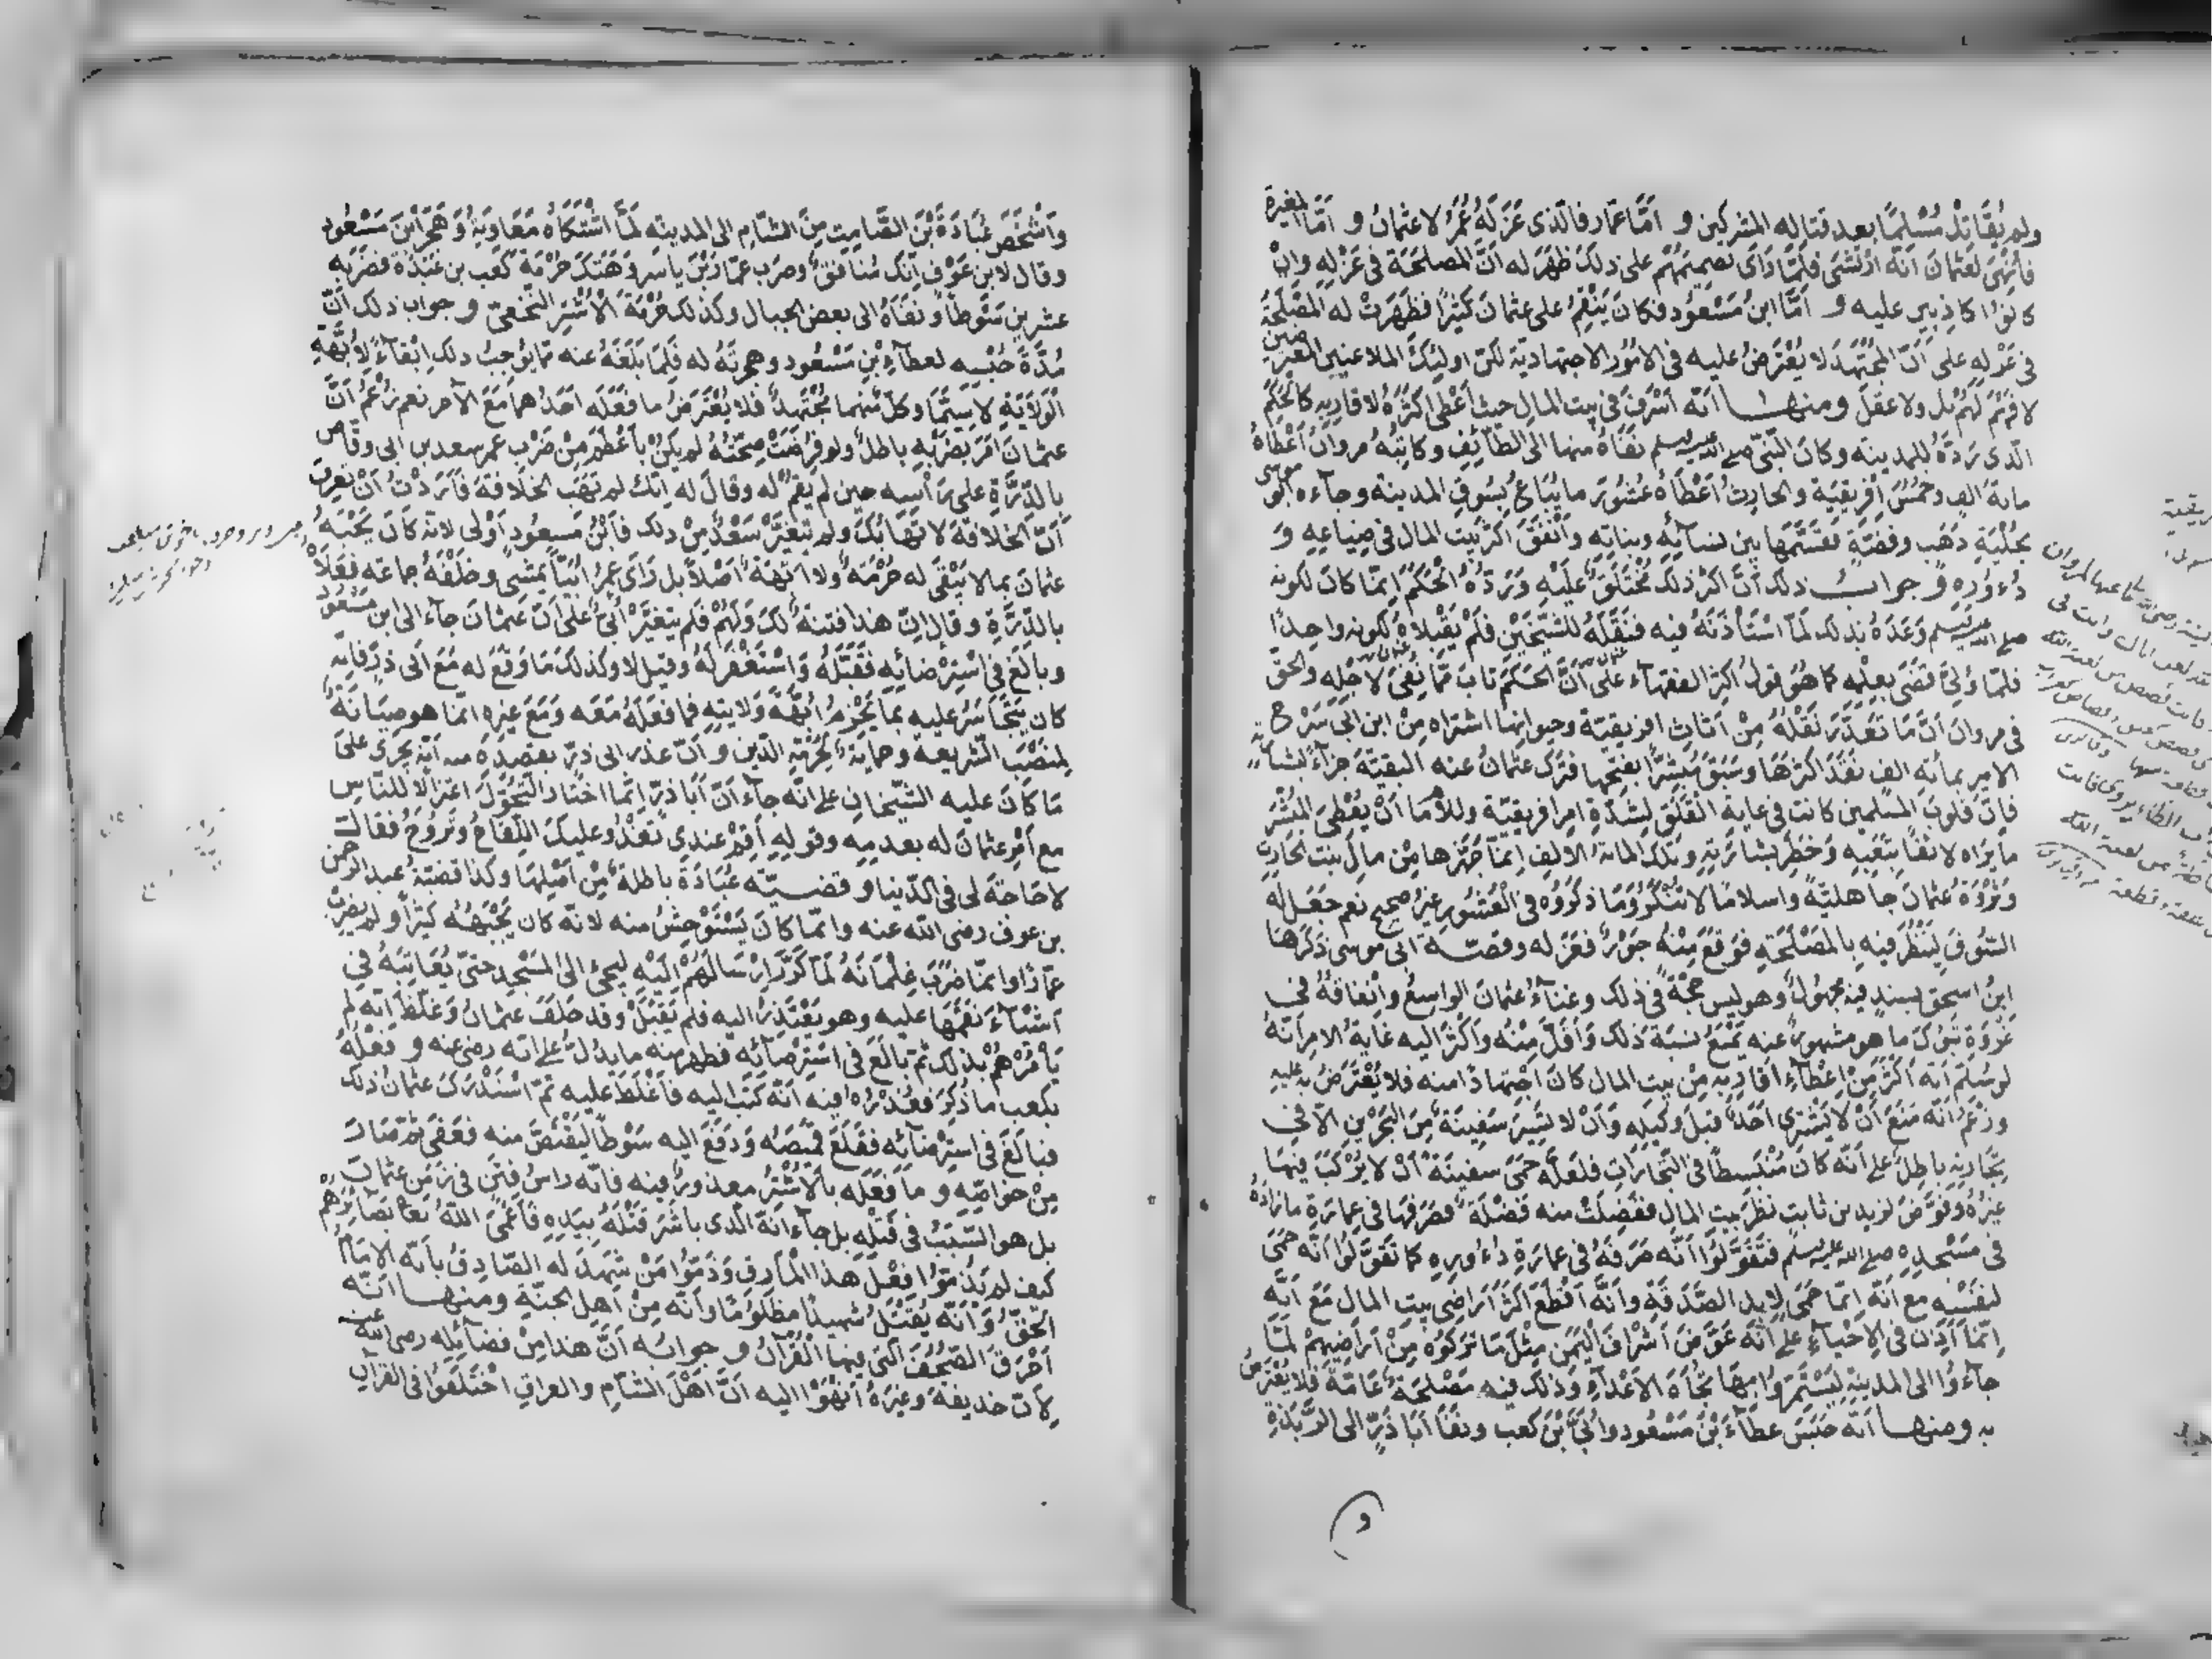 ولم يُقَاتِلْ مُسْلِمًا بعد قتاله المشركين و أمَّا عمّار فالّذى عَزَلَهُ عُمَرُ لا عثمانُ و أمّا المغيرة
فأُنْهِىَ لعثمانَ أنّه ارْتَشَى فلمّا رَأَى تصميمَهُم على ذلك ظَهَرَ له أنَّ المصلحَةَ فى عَزْلِهِ وإنْ
كانوا كاذبين عليه و أمّا ابنُ مَسْعُود فكانَ يَنْقِمُ على عثمانَ كثيرًا فظَهَرَتْ له المصْلَحَةُ
فى عَزْلِهِ على أنّ المجْتَهِدَ لا يُعْتَرَضُ عليه فى الامُور الاجتهاديّة لكنّ اولئِكَ الملاعينِ المعترضين
لا فَهْمَ لَهُم بل ولا عقلَ ومنها أنّه أسْرَفَ فى بيت المال حيث أعْطى أكثَرَهُ لاقاربِهِ كالحَكَمِ
الّذى رَدَّهُ للمدينة وكانَ النّبىّ صلى الله عليه وسلم نَفَاهُ منها الى الطّائِفِ وكاتِبُهُ مروانُ أعْطَاهُ
مايةَ الفٍ وخُمُسَ إفْريقيَة والحارثُ أعْطَاهُ عُشُورَ ما يُبَاعُ بسُوقِ المدينة وجآءه أبو موسى
بحِلْيَةِ ذهَبٍ وفضَّةٍ فقَسَّمَها بين نسآئِهِ وبناتِهِ وأنْفَقَ أكثرَ بيت المال فى ضِياعِهِ وَ
دُءورِه و جوابُ ذلك أنَّ أكثرَ ذلك مُخْتَلَقٌ عَلَيْهِ وَرَدُّهُ الحَكَمَ إنّما كان لكونه
صلى الله عليه وسلم وَعَدَهُ بذلك لمّا اسْتَأذَنَهُ فيه فنَقَلَهُ للشّيخَيْنِ فلَمْ يَقْبلاه لكونه واحدًا
فلمّا وُلِّىَ قضَى بعِلْمِهِ كما هو قولُ أكثر الفقهآء على أنَّ الحَكَمَ تابَ ممّا نُفِىَ لاجْلِهِ والحقّ
فى مروانَ أنَّ مَا تعَذَّرَ نَقْلُهُ مِنْ أثاثِ افريقيّة وحيوانها اشتراه مِنْ ابن أبى سَرْح
الامير بمائةِ الفٍ نَقَدَ أكثرَها وسَبَقَ مُبَشِّرًا بفتحِها فتركَ عثمانُ عنه البقيّة جزآءً لبشارته
فإنّ قلوبَ المسلمين كانت فى غاية القَلَقِ لِشدّةِ امر افريقيّة وللإمام أنْ يُعْطِىَ المُبَشِّرَ
ما يَرَاه لائقًا بتَعَبِهِ وخَطَرِ بشارَتِهِ وتلك المائةُ الالفِ إنّما جَهَّزَها مِنْ مالِ بنت الحارث
وثَرْوَةُ عثمانَ جاهليّةً واسلامًا لا تُنْكَرُ ومَا ذكَرُوه فى العُشُورِ غيرُ صحيحٍ نعم جَعَلَ له
السُّوقَ ليَنْظُرَ فيه بالمَصْلَحَةِ فوَقَعَ مِنْهُ جَوْرٌ فعَزَله وقصّةُ ابى موسى ذكَرَها
ابنُ اسحٰق بسندٍ فيه مجهُولٌ وهو ليس حجّةً فى ذلك وغَنآءُ عثمان الواسعُ وإنفاقُهُ فى
غزوةِ تبُوكَ ما هو مشهورٌ عنه يَمْنَعُ نسبَةَ ذلك وَأقلَّ مِنْهُ وأكثَرَ اليه غايةُ الامر أنّهُ
لو سُلِّمَ أنّه أكثَرَ مِنْ إعْطآءِ أقاربه مِنْ بيت المال كانَ اجْتهادًا منه فلا يُعْتَرَضُ به عليه
وزَعْمُ أنّه مَنَعَ أنْ لا يَشْترى أحَدٌ قبل وكيلِهِ وَأنْ لا تسِيرَ سفينَةٌ مِنَ البَحْرَيْنِ الّا فى
تِجَارتِهِ باطِلٌ على أنّه كان مُنْبَسِطًا فى التّجاراتِ فلعَلَّه حَمَى سفينَةً أنْ لا يَرْكَبَ فيها
غيرُهُ وفَوَّضَ لزيد بن ثابت نظرَ بيتِ المال ففَضِلَتْ منه فَضْلَةٌ فصَرَفها فى عِمارَةِ ما زادَهُ
فى مَسْجدِهِ صلى الله عليه وسلم فتَقَوَّلُوا أنّه صَرَفَهُ فى عمارَةِ دُءُورِهِ كما تقَوَّلُوا أنّه حَمَى
لنَفْسِهِ مع أنّه إنّما حَمَى لإبلِ الصَّدَقةِ وأنّه أقْطَعَ أكثَرَ أرَاضِى بيتِ المال مَعَ أنّه
إنّما أذِنَ فى الإحْيآءِ على أنّه عَوَّضَ أشْرافَ اليَمَنِ مثْلَ مَا تركُوه مِنْ أرَاضِيهِمْ لمّا
جآءُوا الى المدينة ليَسْتمِرّوا بها تُجَاهَ الاعْدآءِ وَذلك فيه مَصْلحَةٌ عَامّةٌ فلا يُعْتَرَضُ
به ومنها أنّه حَبَسَ عطآءَ بْنِ مَسْعُود وأبَىِّ بْنِ كعب ونَفَى أبَا ذَرٍّ الى الرَّبَذةِ
وَأشْخَصَ عُبَادَةَ بْنَ الصَّامِتِ مِنَ الشّامِ الى المدينة لمّا اشْتكَاهُ مُعَاوِيَةُ وَهَجَرَ ابْنَ مَسْعُود
وقال لابن عَوْفٍ إنّك مُنافقٌ وضرَب عمّارَ بْنَ ياسر وَهَتَكَ حُرْمَةَ كعب بن عَبْدَةَ فضَرَبه
عشرين سَوْطًا ونَفَاهُ الى بعض الجبال وكذلك حُرْمَةَ الأشْتَرِ النّخَعىّ و جواب ذلك أنّ
مُدَّةَ حَبْسِهِ لعطآءِ بْنِ مَسْعُود وهِجْرَتَهُ له فلِمَا بَلَغَهُ عنه ممّا يُوجِبُ ذلك إبْقآءً لأبَّهَةِ
الوَلايَةِ لا سِيَّمَا وكلٌّ منهما مُجْتَهِدٌ فلا يُعْتَرَضُ ما فعَلَه أحَدُهما مَعَ الآخر نعم زَعْمُ أنَّ
عثمان أمَرَ بضَرْبِهِ باطلٌ ولو فُرِضَتْ صِحَّتُهُ لم يكنْ بأعْظَمَ مِنْ ضَرْبِ عمر سعد بن ابى وقّاص
بالدِّرَّةِ على رَأسِهِ حين لم يَقُمْ له وقالَ له إنّك لم تَهَبِ الخلافَةَ فأرَدْتُ أنْ تَعْرِفَ
أنّ الخلافَةَ لا تَهَابُكَ ولم يَتغيَّرْ سَعْدٌ مِنْ ذلك فابْنُ مَسعُودٍ أوْلى لانّه كانَ يُجِيبُهُ
عثمانَ بما لا يَبْقَى له حُرْمَةٌ ولا أبّهَةٌ أصْلًا بل رَأى عُمَرُ أُبَيًّا يَمْشى وخَلْفَهُ جماعَة فعَلَاهُ
بالدِّرَّةِ وقال إنّ هذا فتنةٌ لكَ وَلَهُمْ فلم يَتغيَّرْ أُبَىٌّ على أنّ عثمانَ جآء الى ابن مَسْعُود
وبالَغَ فى اسْتِرْضائِه فقَبَّلَهُ وَاسْتَغْفَرَ لَهُ وقيل لا وكذلكَ مَا وَقَعَ له مَعَ أبى ذرّ فإنّه
كان يَتَجَاسَرُ عليه بمَا يَخْرِمُ أبّهَةَ وَلايتِهِ فما فعَلَهُ مَعَه ومَعَ غيرِهِ انّما هو صِيَانَةٌ
لمَنْصَبِ الشّريعة وحمايَةٌ لحُرْمَةِ الدّين و أنّ عذر ابى ذرّ بقصده منه أنّه يَجْرى على
مَا كانَ عليه الشّيخان على أنّه جآءَ أنَّ أبَا ذرّ إنّما اختَارَ التّحَوُّلَ اعْتزالًا للنّاس
مع أمْرِ عثمانَ له بعدمِهِ وقولِهِ أقِمْ عندِى تَغْدُو عليكَ اللِّقاحُ وتَرُوحُ فقالَ
لا حَاجَةَ لى فى الدّنيا و قضيّة عُبَادَةَ باطلةٌ مِنْ أصْلِهَا وكذا قضيّةُ عبد الرحمن
بن عوف رضى الله عنه وانّما كانَ يَسْتَوْحِشُ منه لانّه كان يُجيبُهُ كثيرًا ولم يَضْرِبْ
عمّارًا وإنّما ضَرَبَ غِلْمَانُهُ لمّا كرَّرَ إرْسَالَهُمْ إلَيْهِ ليجئَ الى المَسْجِدِ حتّى يُعَاتِبَهُ فى
أشْيآءَ نَقَمَهَا عليه وهو يَعْتَذِرُ اليه فلم يَقْبَلْ وقد حَلَفَ عثمانُ وَغَلَّظَ أنّه لم
يَأمُرْهُمْ بذلك ثمّ بالَغَ فى اسْتِرْضائِه فظهر منه ما يَدُلُّ على أنّه رضى عنه و فعْلُهُ
بكعب ما ذُكِرَ فعُذْرُه فيه أنّه كَتَبَ اليه فأغْلَظَ عليه ثمّ اسْتَدْرَكَ عثمانُ ذلك
فبالَغَ فى اسْتِرْضَآئِه فخَلَعَ قمِيصَه ودَفَعَ اليه سَوْطًا ليَقْتَصَّ منه فعَفَى ثمّ صَارَ
مِنْ خواصّهِ و ما فعَلَه بالأشْتَرِ معذورٌ فيه فانّه رأسُ فِتَنٍ فى زَمَنِ عثمان
بل هو السَّبَبُ فى قَتْلِهِ بل جآء أنّهُ الّذى باشَرَ قتْلَهُ بيَدِهِ فأعْمَى اللّهُ تعالى بَصَائِرَهُمْ
كيف لم يَذُمّوا فعْلَ هذا المارِقِ وَذَمّوا مَنْ شَهِدَ له الصَّادِقُ بأنّه الامَامُ
الحَقُّ وَأنّه يُقْتَلُ شهيدًا مظلُومًا وأنّه مِنْ أهل الجنّة ومنها أنّه
أحْرَقَ الصُّحُفَ التى فيها القُرْآنُ و جوابُه أنَّ هذا مِنْ فضآئِلِهِ رضى الله عنه
لأنّ حذيفةَ وغيرَهُ أنْهَوْا اليه أنّ أهْلَ الشّامِ والعراقِ اخْتَلَفُوا فى القرآن